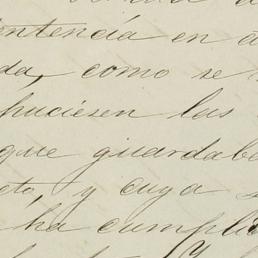 entencia en
da, como se
huciesen las
que guardaba
eto, y cuya
ha cumpli